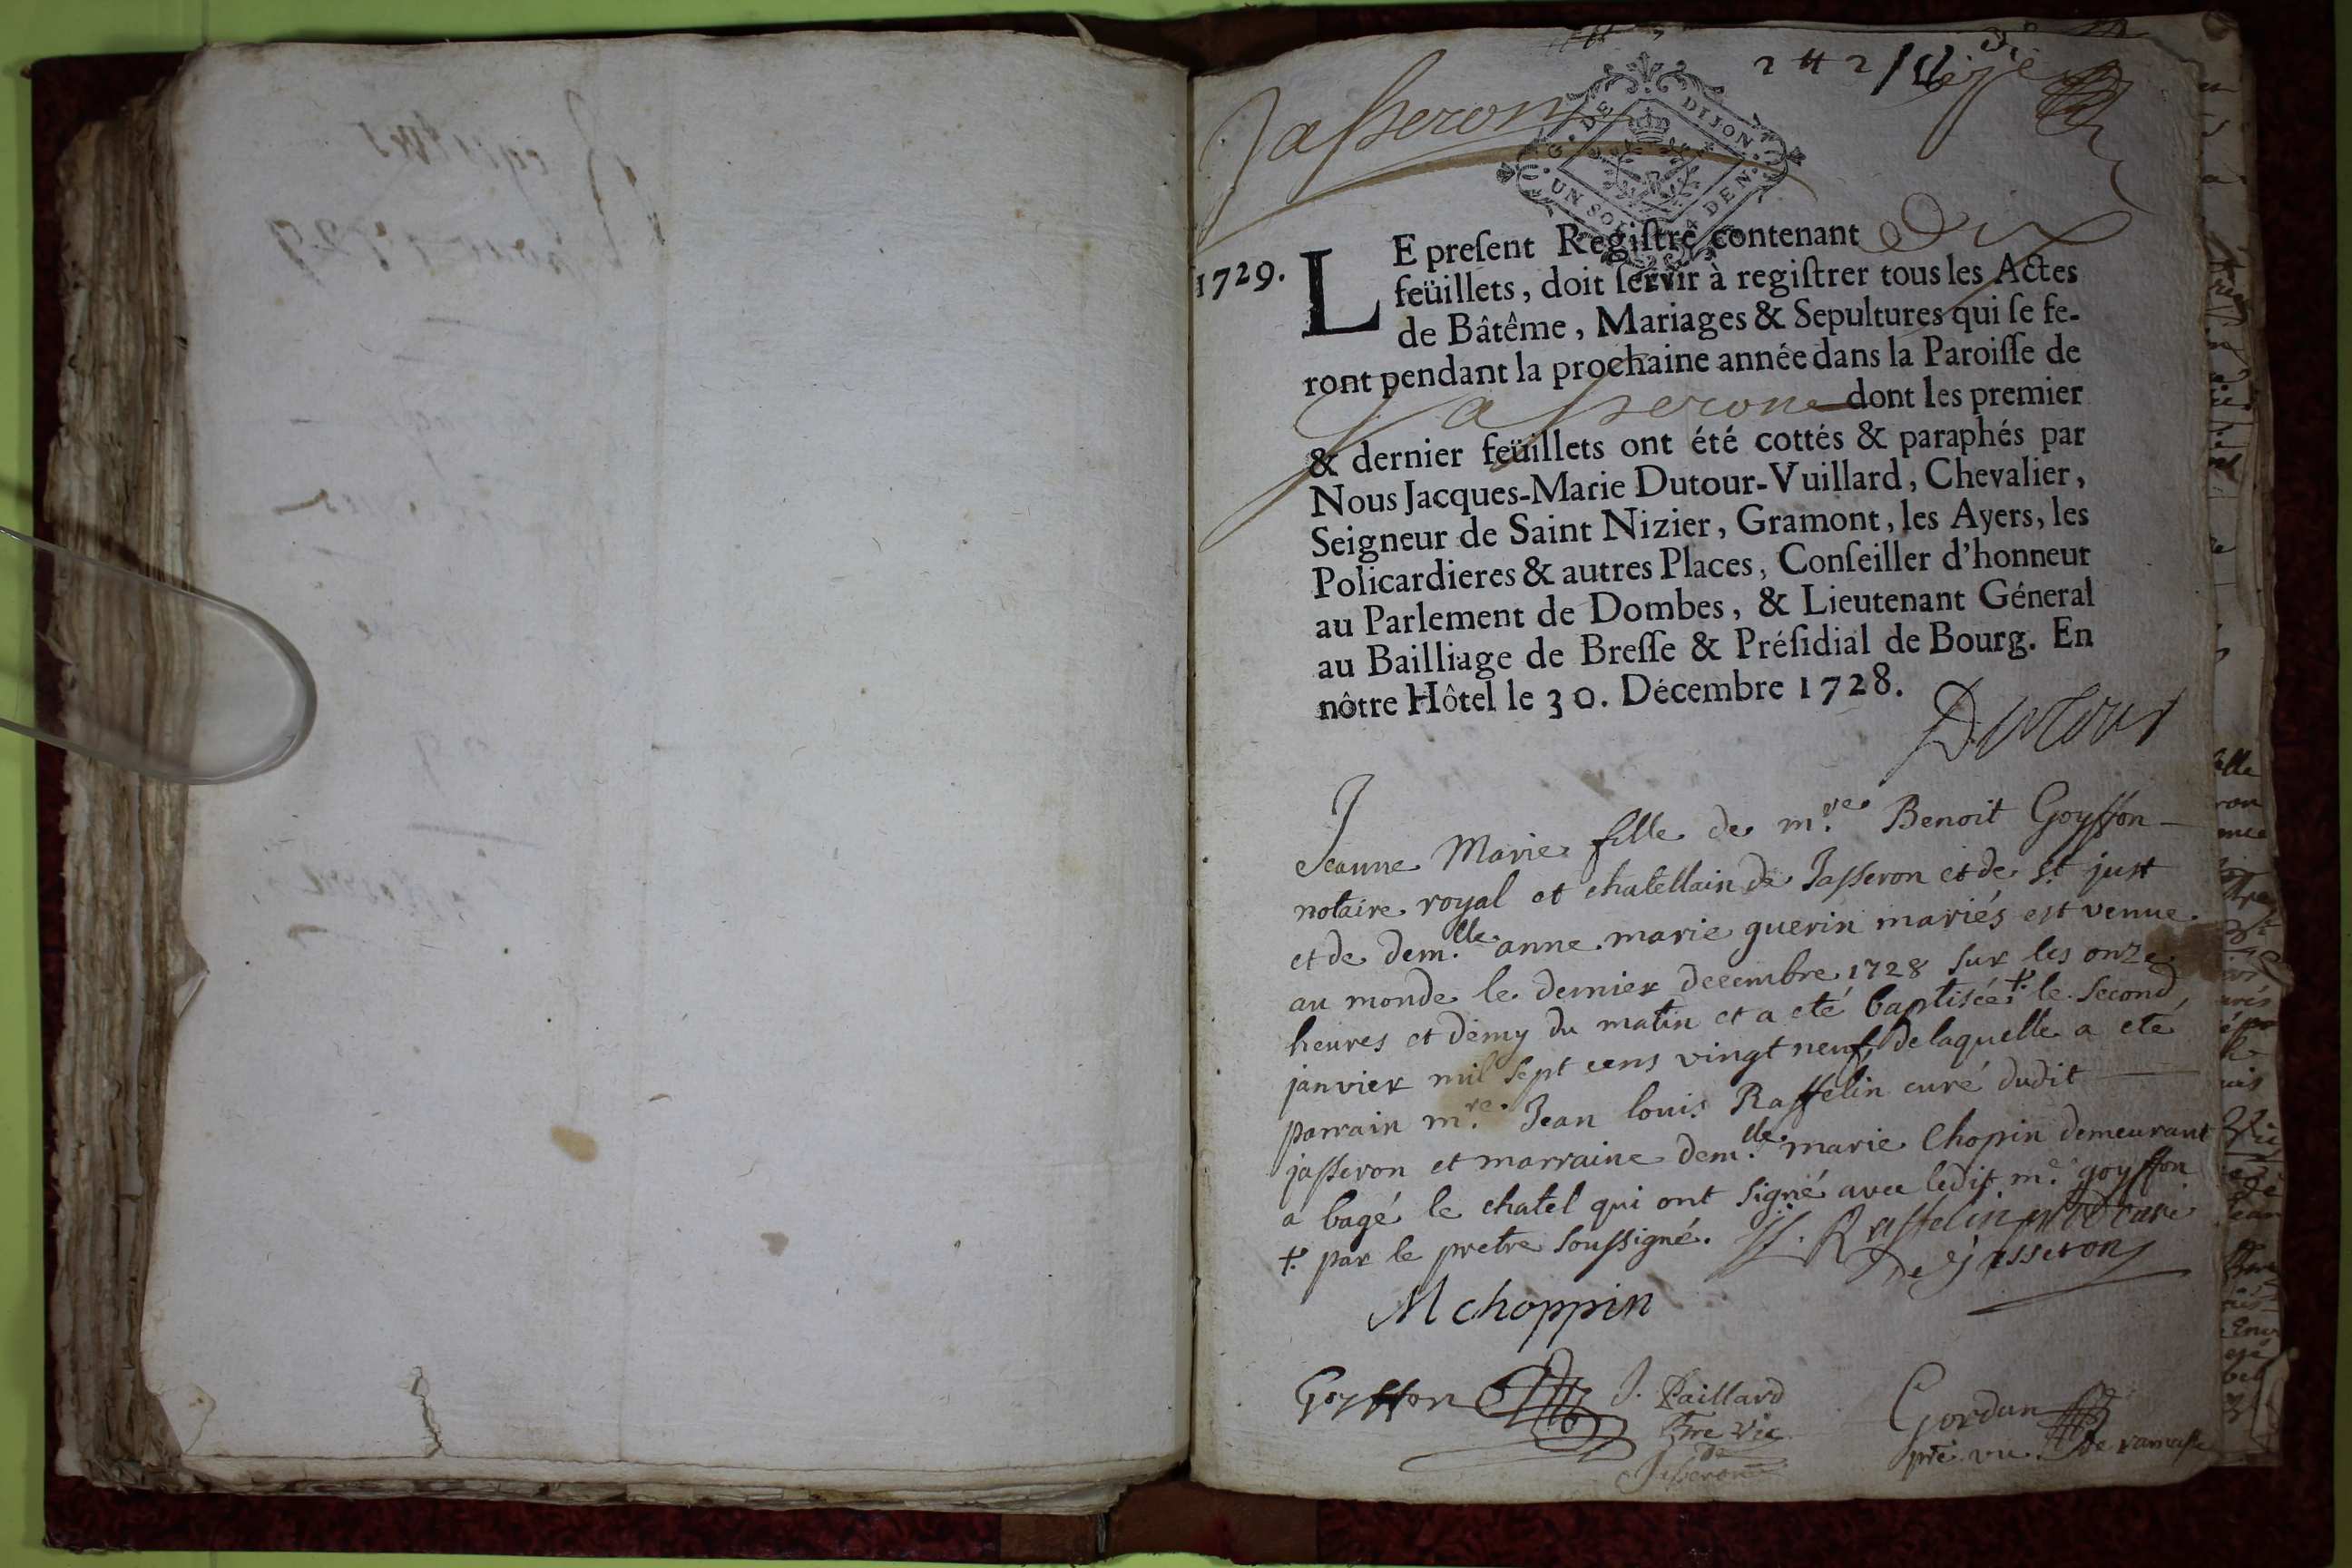 Jasseron
G. DE DIJON.
UN SOL 4 DEN.
1729.
LE preſent Regiſtre contenant Dix
feüillets, doit ſervir à regiſtrer tous les Actes
de Bâtême, Mariages & Sepultures qui ſe fe-
ront pendant la prochaine année dans la Paroiſſe de
Jasseron dont les premier
& dernier feüillets ont été cottés & paraphés par
Nous Jacques-Marie Dutour-Vuillard, Chevalier,
Seigneur de Saint Nizier, Gramont, les Ayers, les
Policardieres & autres Places, Conſeiller d'honneur
au Parlement de Dombes, & Lieutenant Géneral
au Bailliage de Breſſe & Préſidial de Bourg. En
nôtre Hôtel le 30. Décembre 1728.
Dutour
Jeanne Marie fille de m.re Benoit Goyffon
notaire royal et chatellain de Jasseron et de st just
et de dem.lle anne marie guerin mariés est venue
au monde le dernier decembre 1728 sur les onze
heures et demy du matin et a eté baptisée +. le second
janvier mil sept cens vingt neuf, de laquelle a eté
parrain m.re Jean louis Raffelin curé dudit
jasseron et marraine dem.lle marie Chopin demeurant
a bagé le chatel qui ont signé avec ledit m.e goyffon
+. par le pretre soussigné. Raffelin curé
de Jasseron
M choppin
Goyffon
J. Paillard
Ptre vic.
de
Jasseron
Gordan
ptre vic. de ramasse